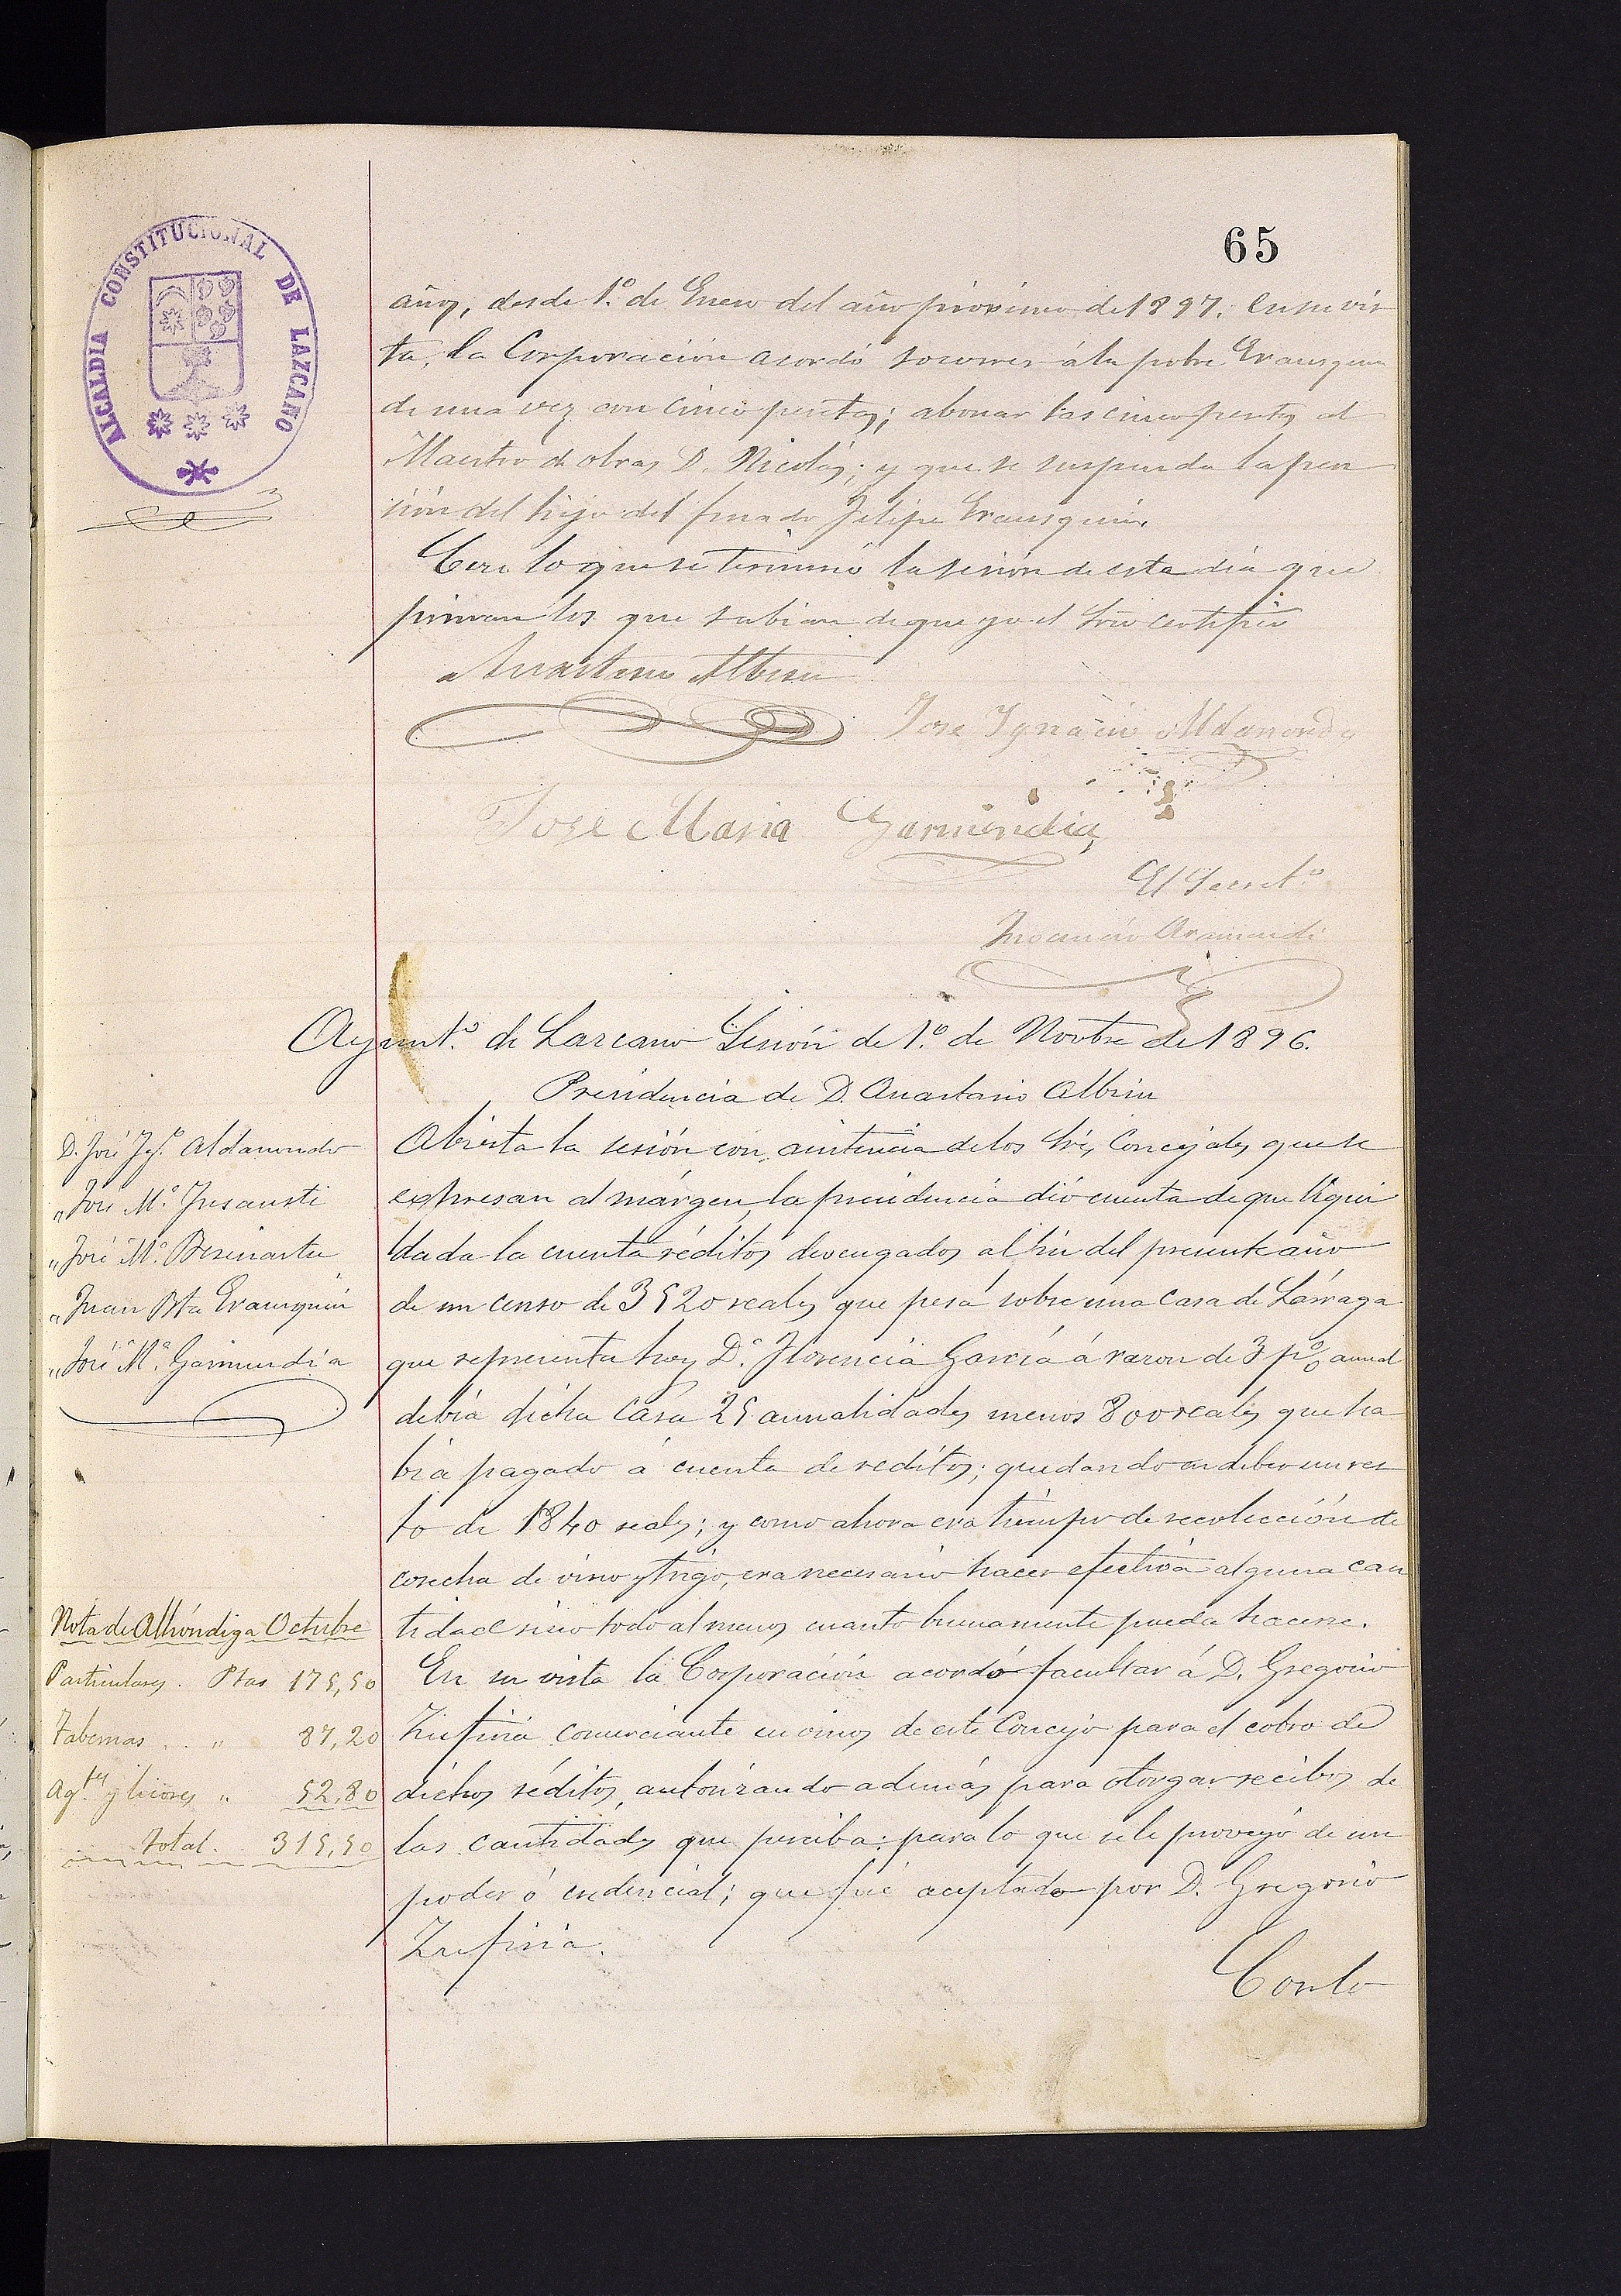 65
ALCALDIA CONSTITUCIONAL DE LAZCANO
años, desde 1.º de Enero del año próximo de 1897. En su vis
ta, la Corporación acordó socorrer á la pobre Erausquin
de una vez con cinco pesetas; abonar las cinco pesetas al
Maestro de obras D. Nicolás; y que se suspenda la pen
sión del hijo del finado Felipe Erausquin.
Con lo que se terminó la sesión de este día que
firman los que sabían de que yo el Srio certifico
Anastasio Albisu
José Ignacio Aldanondo
José Maria Garmendia
El Secret.º
Inocencio Aramendi
Ayunt.º de Lazcano Sesión de 1.º de Novbre de 1896.
Presidencia de D. Anastasio Albisu
D. José Ig.º Aldanondo
" José M.ª Insausti
" José M.ª
" Juan Bta Erausquin
" José M.ª Garmendia
Abierta la sesión con asistencia de los Sres Concejales que se
expresan al márgen, la presidencia dió cuenta de que liqui
dada la cuenta réditos devengados al fin del presente año
de un censo de 3520 reales que pesa sobre una casa de Lárraga
que representa hoy D.ª Florencia García á razon de 3 pº/o anual
debía dicha casa 25 anualidades menos 800 reales que ha
bía pagado á cuenta de reditos; quedando en deber un res
to de 1840 reales; y como ahora era tiempo de recolección de
cosecha de vino y trigo, era necesario hacer efectiva alguna can
tidad sino todo al menos cuanto buenamente pueda hacerse.
En su vista la Corporación acordó facultar á D. Gregorio
Zufiria comerciante en vinos de este Concejo para el cobro de
dichos réditos, autorizando además para otorgar recibos de
las cantidades que perciba: para lo que se le proveyó de un
poder ó credencial; que fué aceptado por D. Gregorio
Zufiria.
Nota de Alhóndiga Octubre
Particulares. Ptas 175,50
Tabernas .. " 87,20
Ag.tes y licores " 52,80
Total. 315,50
Con lo